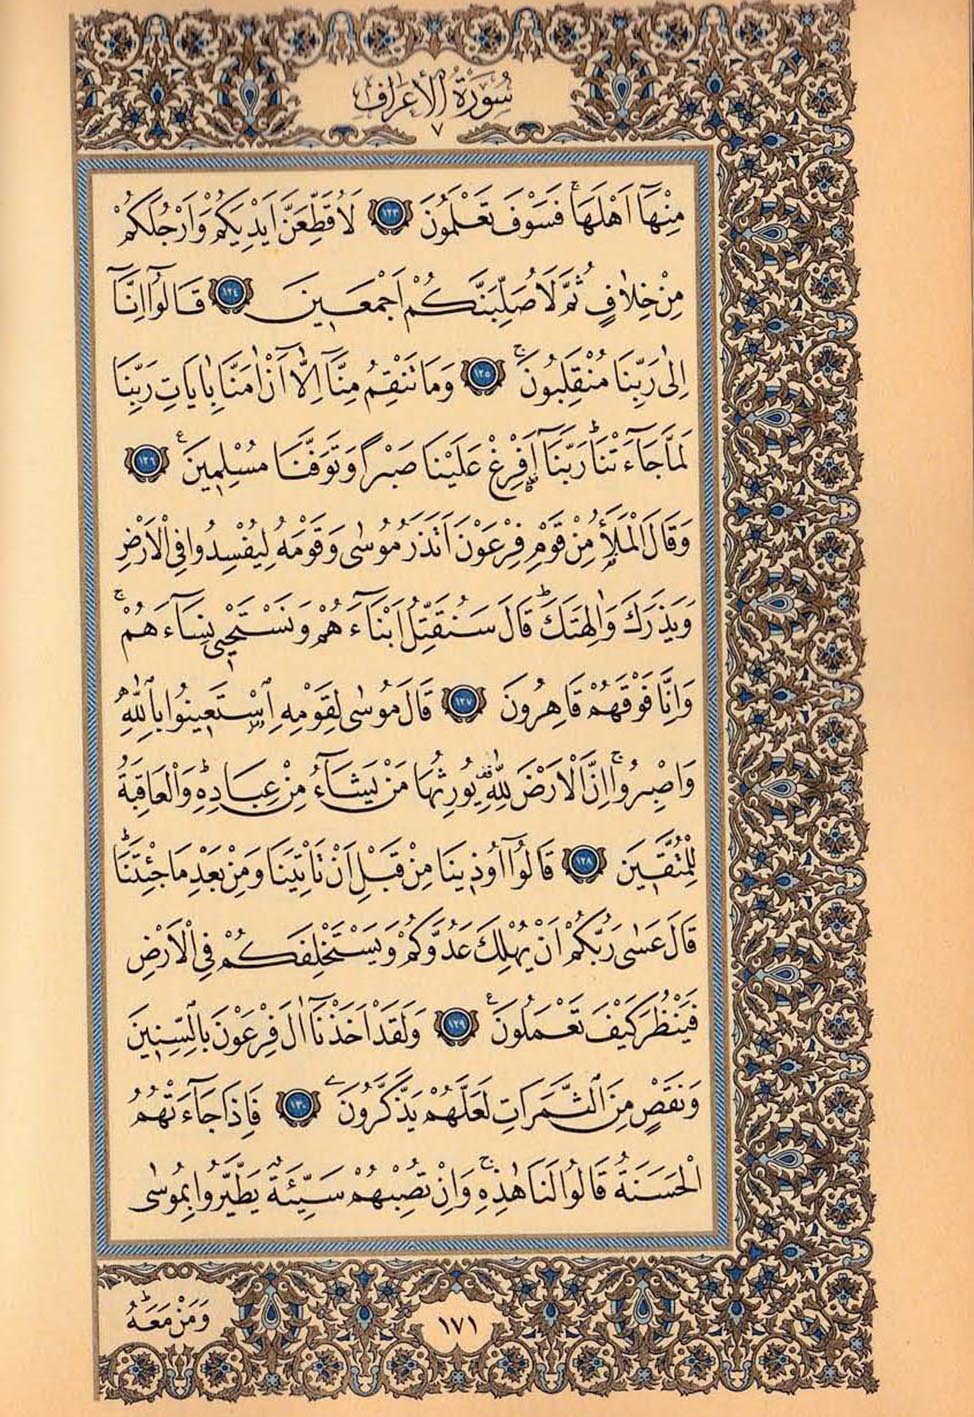 سُورَةُ الْأَعْرَافِ
٧
مِنْهَٓا اَهْلَهَاۚ فَسَوْفَ تَعْلَمُونَ ﴿١٢٣﴾ لَاُقَطِّعَنَّ اَيْدِيَكُمْ وَاَرْجُلَكُمْ
مِنْ خِلَافٍ ثُمَّ لَاُصَلِّبَنَّكُمْ اَجْمَعِينَ ﴿١٢٤﴾ قَالُٓوا اِنَّٓا
اِلٰى رَبِّنَا مُنْقَلِبُونَۚ ﴿١٢٥﴾ وَمَا تَنْقِمُ مِنَّٓا اِلَّٓا اَنْ اٰمَنَّا بِاٰيَاتِ رَبِّنَا
لَمَّا جَٓاءَتْنَاۜ رَبَّنَٓا اَفْرِغْ عَلَيْنَا صَبْرًا وَتَوَفَّنَا مُسْلِمِينَ۟ ﴿١٢٦﴾
وَقَالَ الْمَلَأُ مِنْ قَوْمِ فِرْعَوْنَ اَتَذَرُ مُوسٰى وَقَوْمَهُ لِيُفْسِدُوا فِي الْاَرْضِ
وَيَذَرَكَ وَاٰلِهَتَكَۜ قَالَ سَنُقَتِّلُ اَبْنَٓاءَهُمْ وَنَسْتَحْيِي نِسَٓاءَهُمْۚ
وَاِنَّا فَوْقَهُمْ قَاهِرُونَ ﴿١٢٧﴾ قَالَ مُوسٰى لِقَوْمِهِ اسْتَعِينُوا بِاللّٰهِ
وَاصْبِرُواۚ اِنَّ الْاَرْضَ لِلّٰهِ يُورِثُهَا مَنْ يَشَٓاءُ مِنْ عِبَادِهِۜ وَالْعَاقِبَةُ
لِلْمُتَّقِينَ ﴿١٢٨﴾ قَالُٓوا اُو۫ذِينَا مِنْ قَبْلِ اَنْ تَأْتِيَنَا وَمِنْ بَعْدِ مَا جِئْتَنَاۜ
قَالَ عَسٰى رَبُّكُمْ اَنْ يُهْلِكَ عَدُوَّكُمْ وَيَسْتَخْلِفَكُمْ فِي الْاَرْضِ
فَيَنْظُرَ كَيْفَ تَعْمَلُونَ۟ ﴿١٢٩﴾ وَلَقَدْ اَخَذْنَٓا اٰلَ فِرْعَوْنَ بِالسِّنِينَ
وَنَقْصٍ مِنَ الثَّمَرَاتِ لَعَلَّهُمْ يَذَّكَّرُونَ ﴿١٣٠﴾ فَاِذَا جَٓاءَتْهُمُ
الْحَسَنَةُ قَالُوا لَنَا هٰذِهِۚ وَاِنْ تُصِبْهُمْ سَيِّئَةٌ يَطَّيَّرُوا بِمُوسٰى
وَمَنْ مَعَهُۜ
١٧١